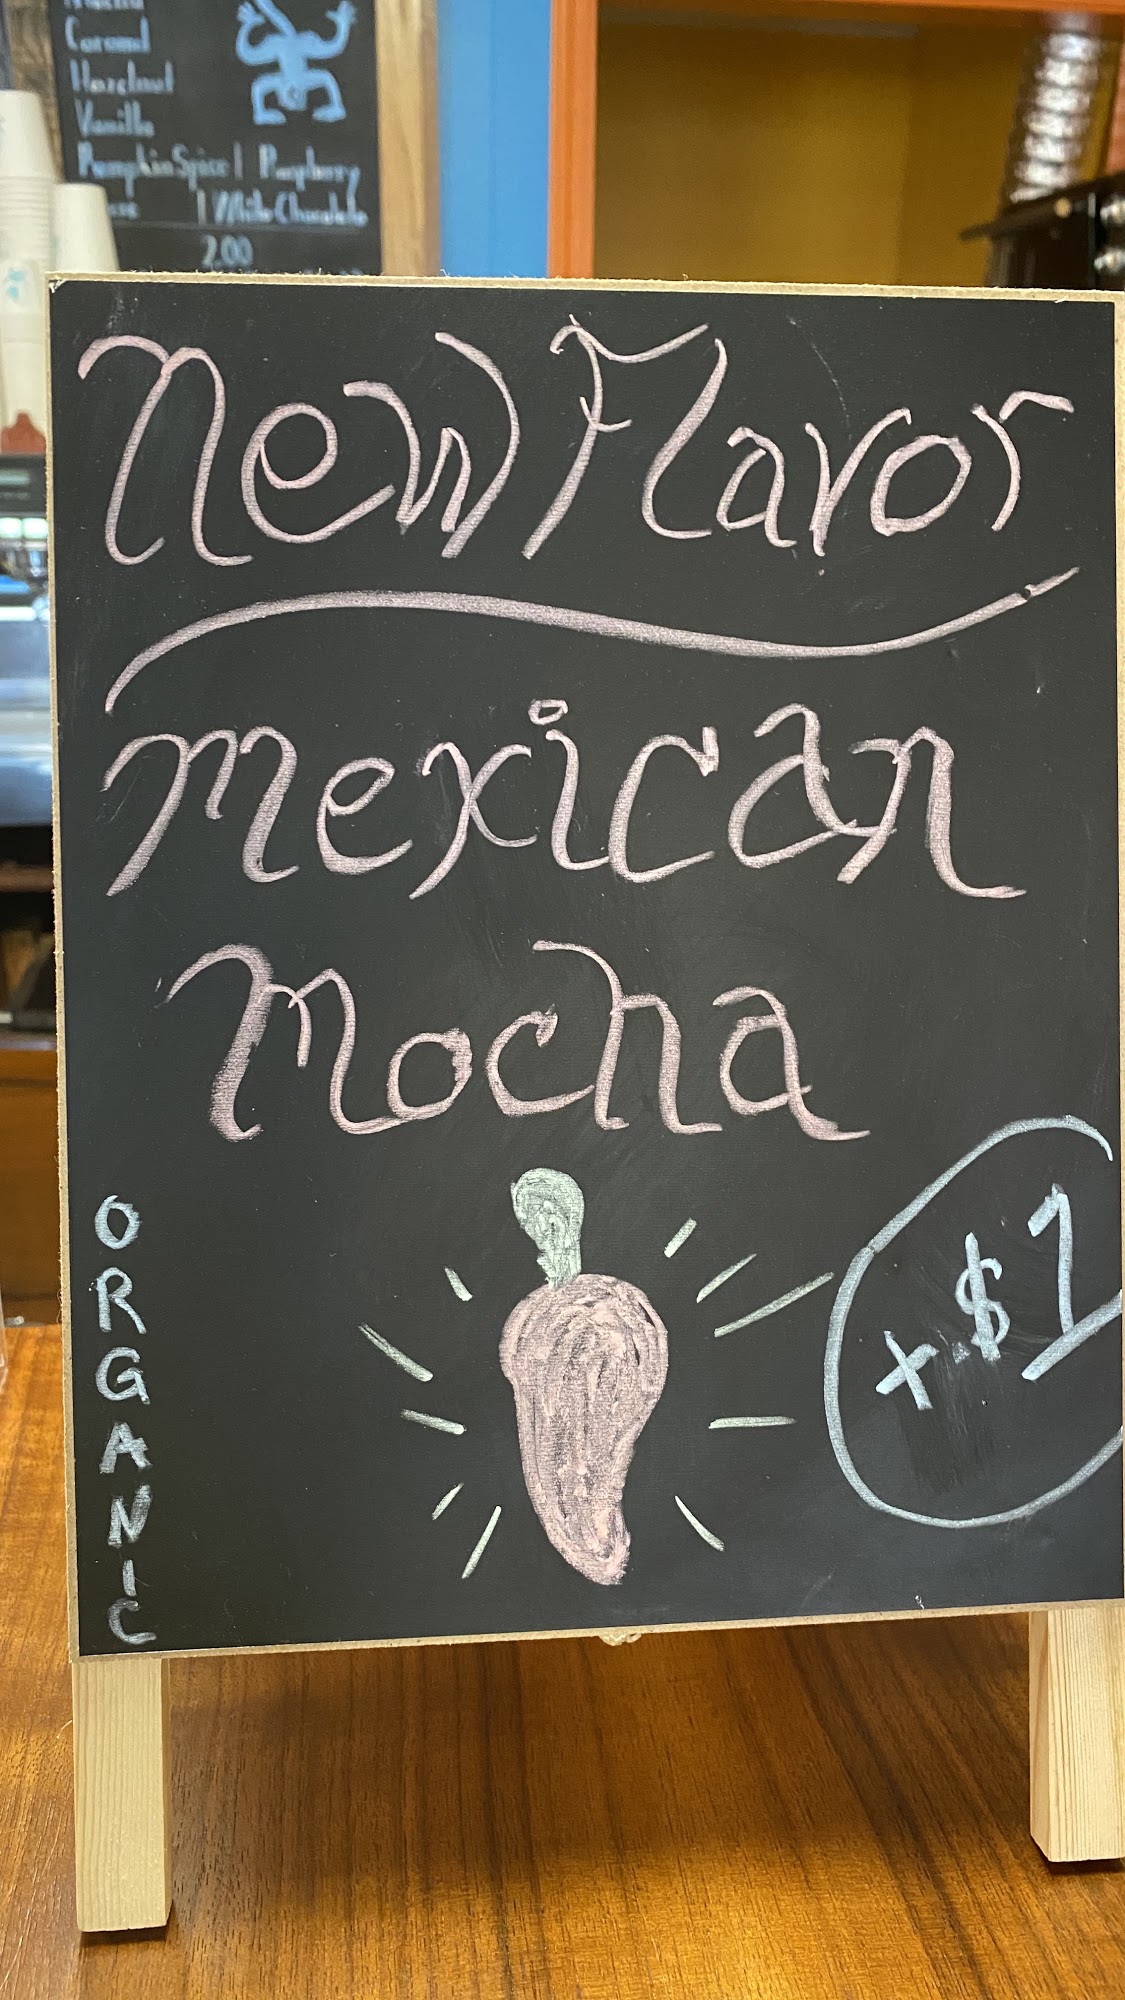 Caramel
Hazelnut
Vanilla
Pumpkin Spice |
White Chocolate
2.00
New Flavor
Mexican
Mocha
ORGANIC
+ $1